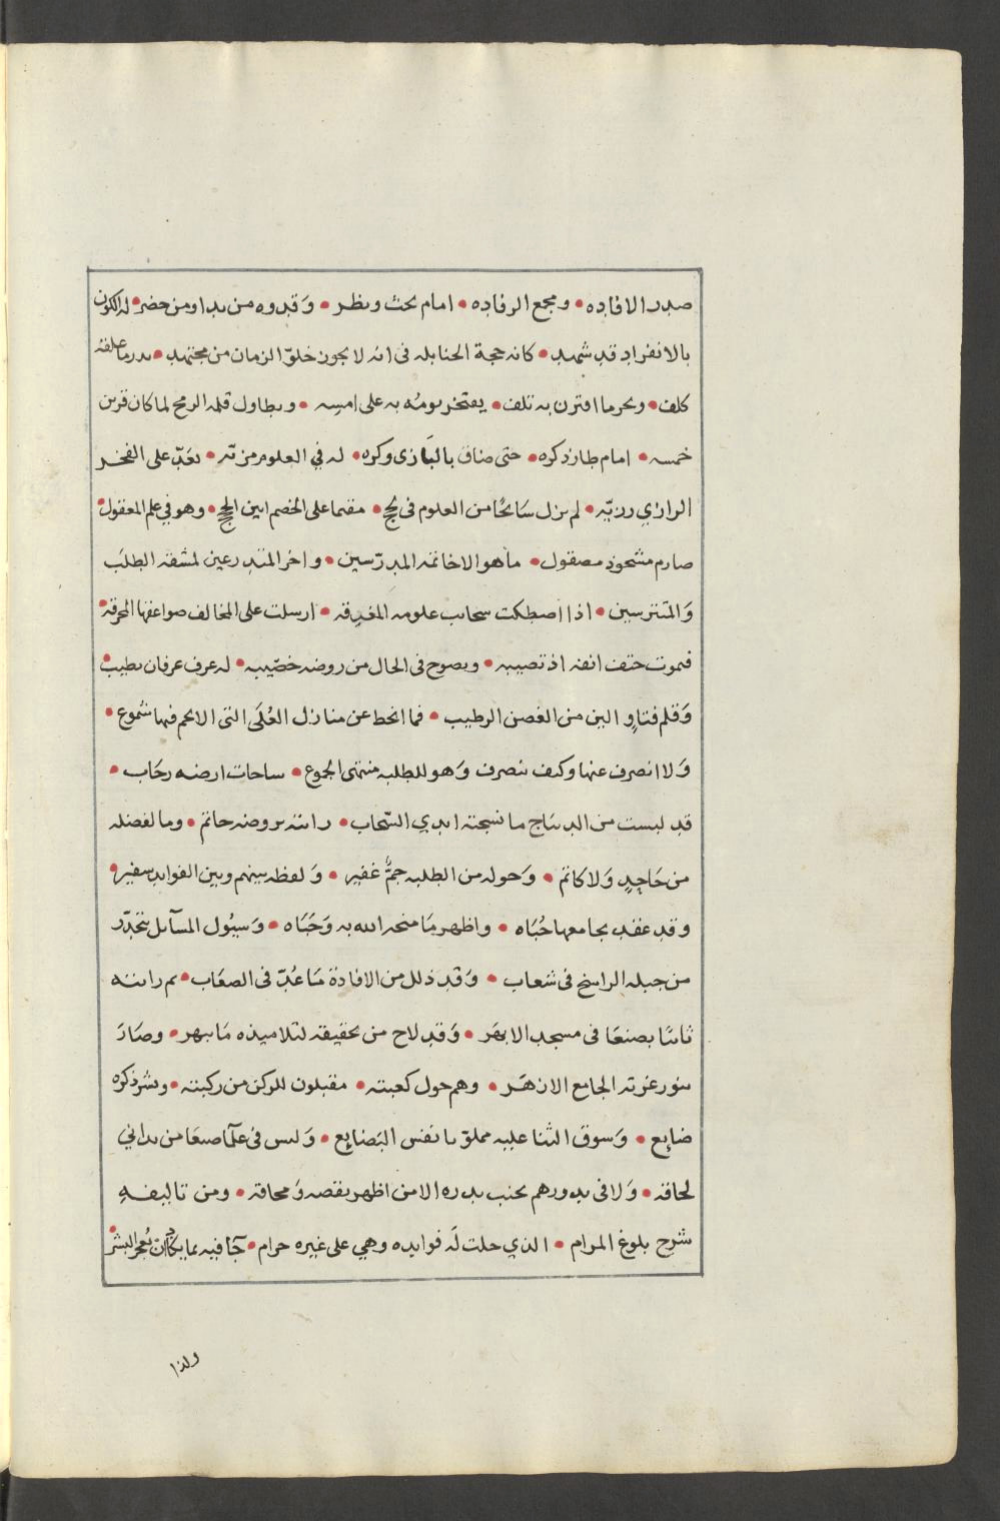 صدر الافاده • ومجمع الرفاده • امام بحث ونظر • وَقدوه من بدا ومن حضر • له الكون
بالانفراد قد شهد • كانه حجة الحنابله فى انه لا يجوز خلوّ الزمان من مجتهد • بدر ما علقه
كلف • وبحر ما اقترن به تلف • يفتخر يومُه به على امسِه • ويطاول قلمه الرمح لما كان قرين
خمسه • امام طار ذكره • حتى ضاق بالبَازى وكره • له في العلوم مزيّه • تعَدّ على الفخر
الرازي رزيّه • لم يزل سَابحًا من العلوم فى لجج • مقيما على الخصم ابين الحجج • وهو في علم المعقول •
صارم مشحوذ مصقول • ماهو الا خاتمه المدرّسين • واخر المتدرعين لمشقة الطلَب
وَالمتترسين • اذا اصطكت سحايب علومه المغدقه • ارسلت على المخالف صواعقها المحرقه •
فيموت حتف انفه اذ تصيبه • ويصوح فى الحال من روضه خصّيبه • له عرف عرفان يطيب •
وَقلم فتاوٍ الين من الغصن الرطيب • فما انحط عن منازل العُلَى التى الانجم فيها شموع •
وَلا انصرف عنها وكيف ينصرف وَهو للطلبه منتهى الجموع • ساحات ارضه رحَاب •
قد لبست من الديبَاج ما نسجته ايدي السّحاب • رايته بروضه حاتم • وما لفضله
من جَاحِدٍ وَلا كاتم • وَحوله من الطلبه جمٌّ غفير • وَلفظه بينهم وبين الفوايد سفير •
وقد عقد بجامعها حُبَاه • واظهر مَا منحه الله به وَحَبَاه • وَسيُول المسآيل تتحَدّر
من جبله الراسخ فى شعاب • وَقد ذلل من الافادة مَا عُدّ فى الصعَاب • ثم رايته
ثانيًا بصنعَا فى مسجد الابهَر • وَقد لاح من تحقيقه لتلاميذه مَا يبهر • وصَارَ
بنور غرته الجامع الازهَر • وهم حول كعبته • مقبلون للركن من ركبته • ونشر ذكره
ضايع • وَسوق الثنا عليه مملوّ بانفس البَضايع • وَليس فى علمَآ صنعَا من يداني
لحاقه • وَلا فى بدورهم بجنب بدره الا من اظهر نقصه وَمحاقه • ومن تاليفهِ
شرح بلوغ المرام • الذي حلت لَه فوايده وهي على غيره حرام • جَآ فيه بما يكاد ان يُعجز البشر •
ولذا